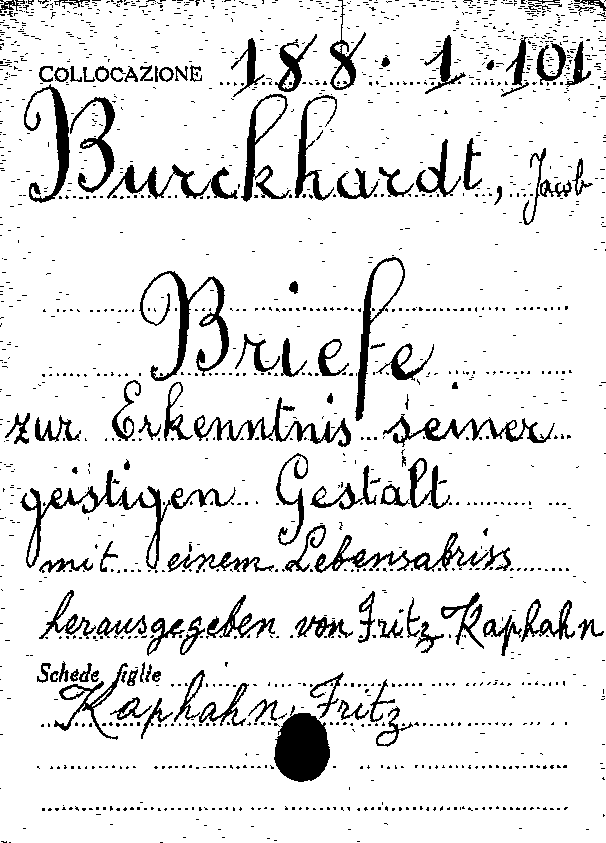 COLLOCAZIONE 188.1.101
Burckhardt, Jacob
Briefe
zur Erkenntnis seiner
geistigen Gestalt
mit einem Lebensabriss
herausgegeben von Fritz Kaphahn
Schede figlie
Kaphahn, Fritz